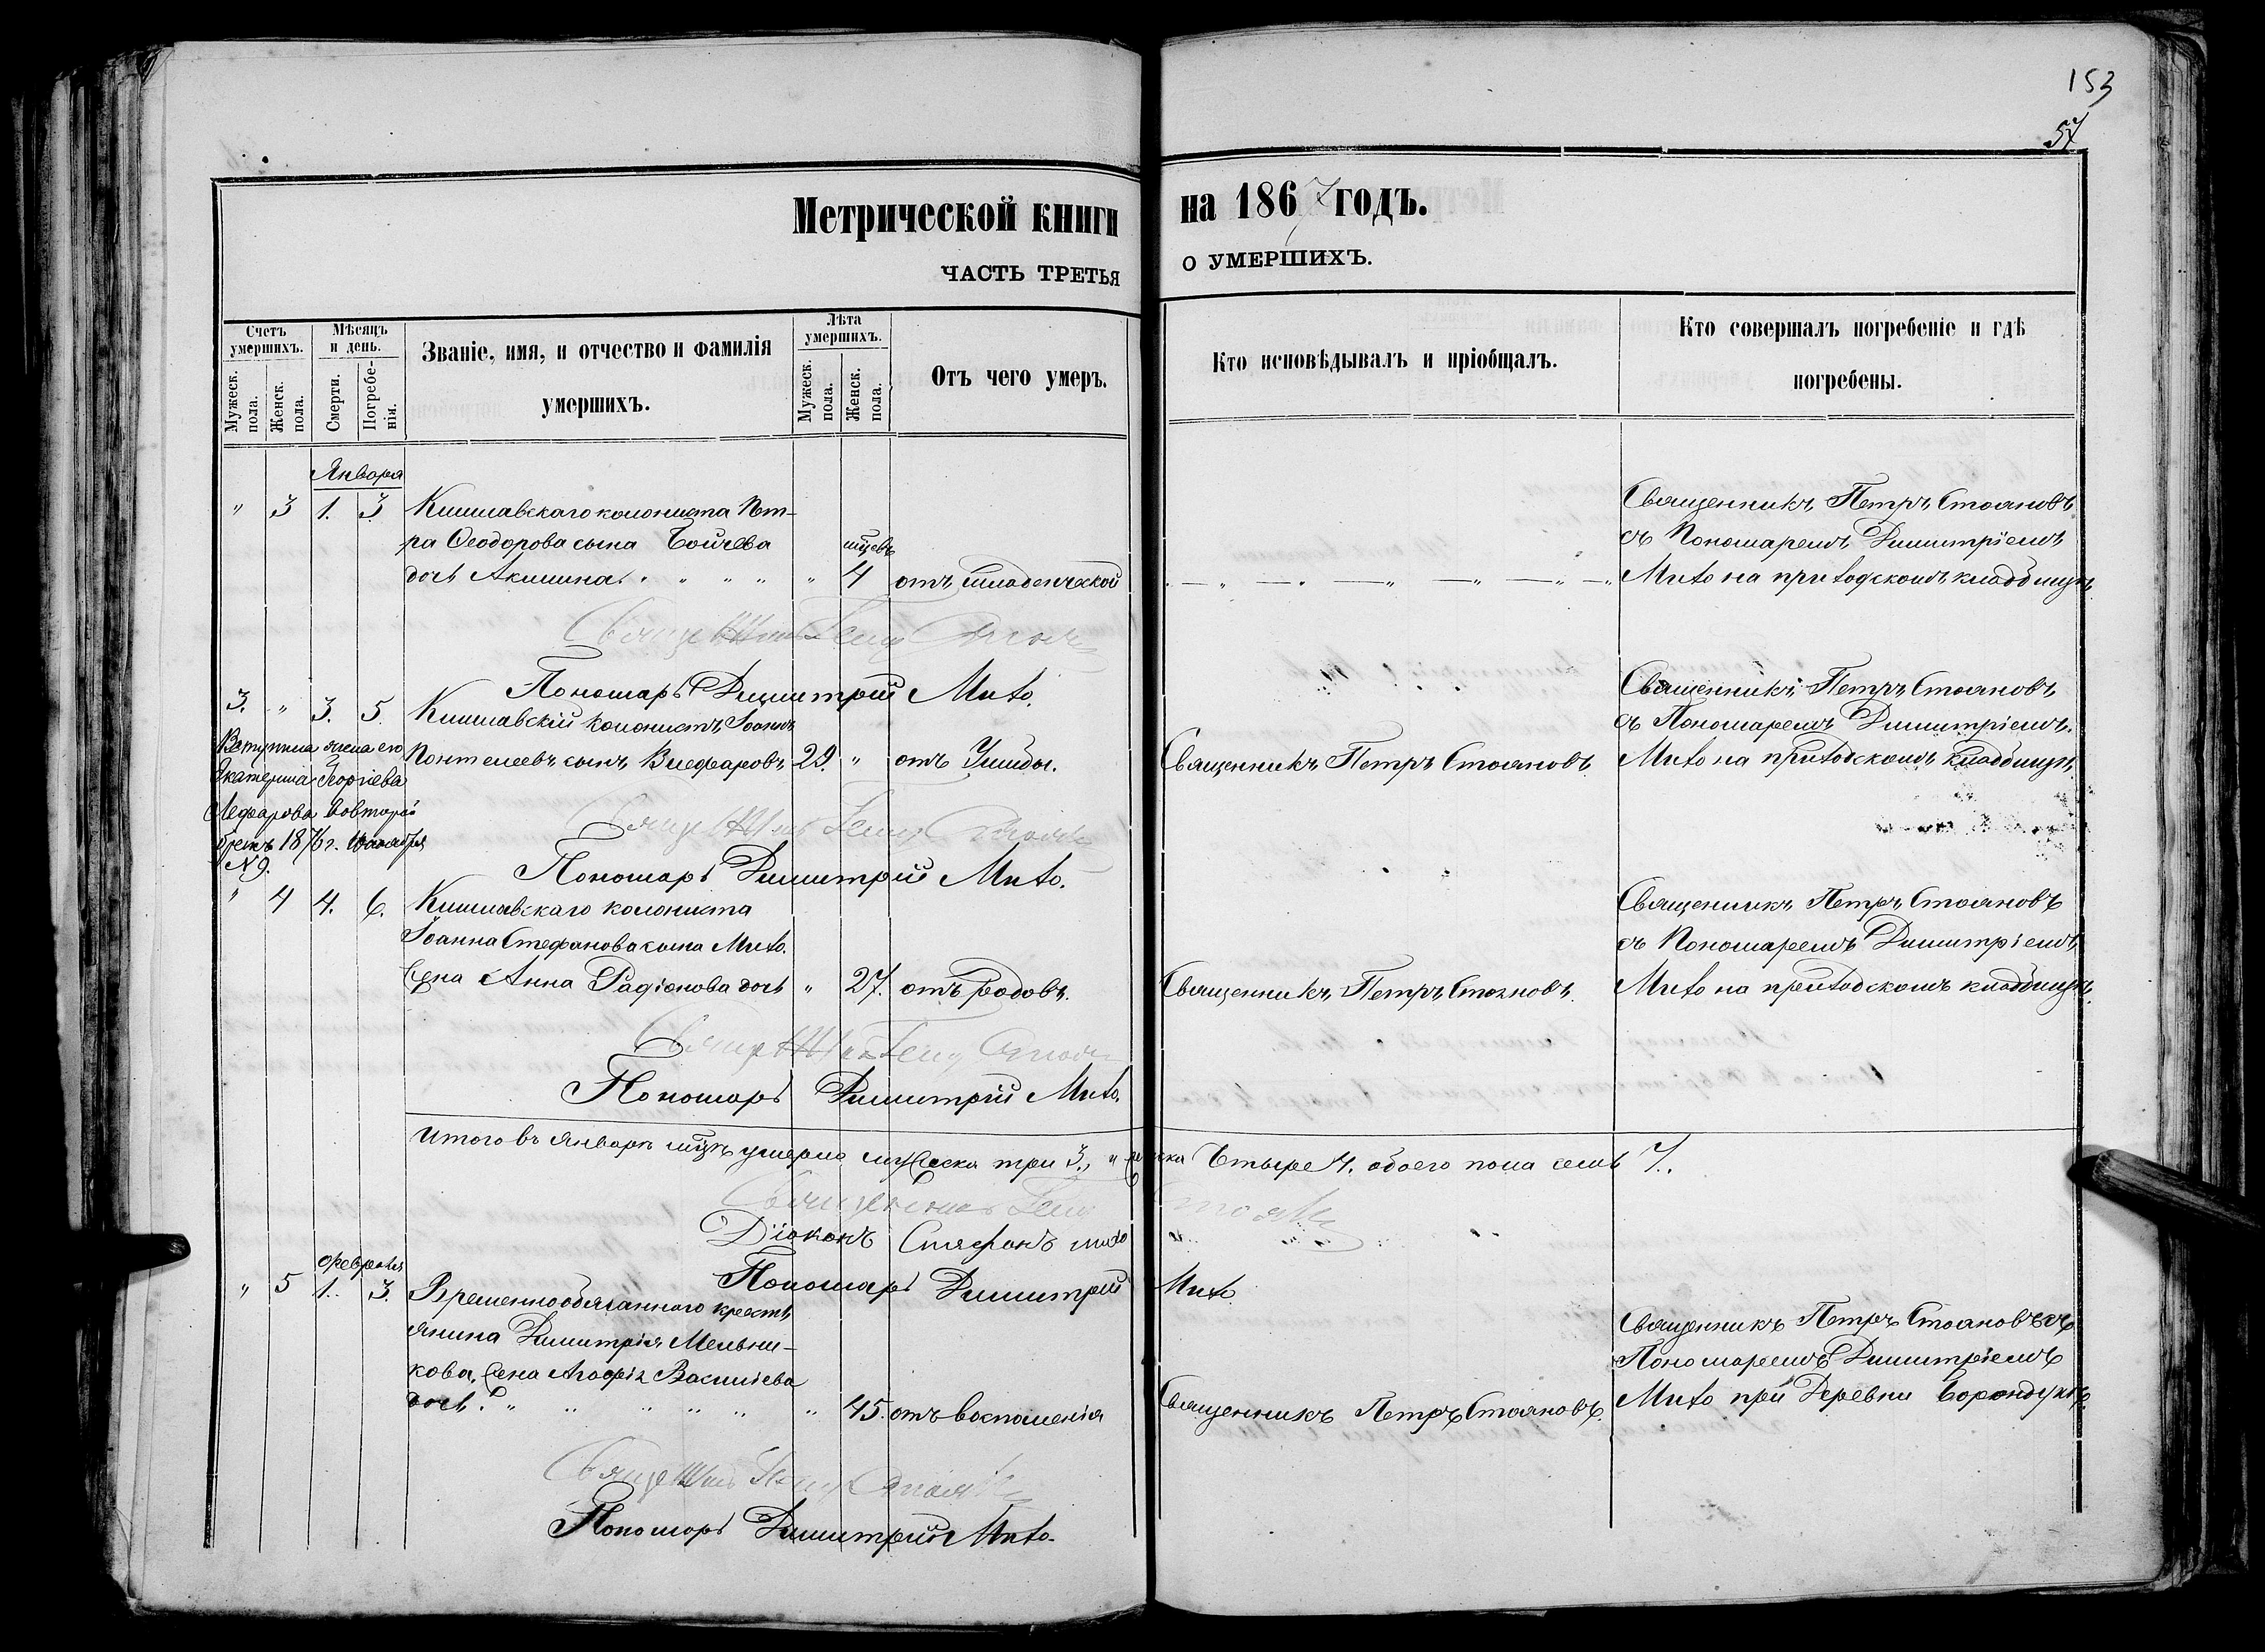 153
57
Метрической книги на 1867 годъ.
ЧАСТЬ ТРЕТЬЯ О УМЕРШИХЪ.
Счетъ умершихъ.
Мужеск. пола.
Женск. пола.
Мѣсяцъ и день.
Смерти.
Погребенія.
Званіе, имя, и отчество и фамилія умершихъ.
Лѣта умершихъ.
Мужеск. пола.
Женск. пола.
Отъ чего умеръ.
Кто исповѣдывалъ и пріобщалъ.
Кто совершалъ погребеніе и гдѣ погребены.
Января
" 3 1. 3 Кишлавскаго колониста Пет-
ра Ѳеодорова сына Бойчева мцевъ
дочь Акилина " 4 отъ младенческой
Священникъ Петръ Стояновъ
съ Пономаремъ Димитріемъ
Михо на приходскомъ кладбищѣ
Священникъ Петръ Стоянов
Пономарь Димитрій Михо.
3. " 3. 5. Кишлавскій колонистъ Іоаннъ
Пантелеевъ сынъ 29. " отъ Ушибы.
Священникъ Петръ Стояновъ
Священникъ Петръ Стояновъ
съ Пономаремъ Димитріемъ
Михо на приходскомъ кладбищѣ
Вступила жена его
Екатерина Георгіева
во второй
бракъ 1876 г.
№ 9.
Священникъ Петръ Стоянов
Пономарь Димитрій Михо.
" 4 4. 6. Кишлавскаго колониста
Іоанна Стефанова сына Михо.
жена Анна Радіонова дочь " 27. отъ родовъ.
Священникъ Петръ Стояновъ.
Священникъ Петръ Стояновъ
съ Пономаремъ Димитріемъ
Михо на приходскомъ кладбищѣ
Священникъ Петръ Стоянов
Пономарь Димитрій Михо.
Итого въ Январѣ мцѣ умерло мужеска три 3., женска Четыре 4. обоего пола семь 7.
Священникъ Петръ Стоянов
Діаконъ Стефанъ михо
Пономарь Димитрій Михо
февраля
" 5 1. 3. Временнообязаннаго кресть-
янина Димитрія Мельни-
кова, жена Агафія Василіева
дочь. " 45. отъ воспаленія
Священникъ Петръ Стояновъ.
Священникъ Петръ Стояновъ съ
Пономаремъ Димитріемъ
Михо при Деревни
Священникъ Петръ Стоянов
Пономарь Димитрій Михо.